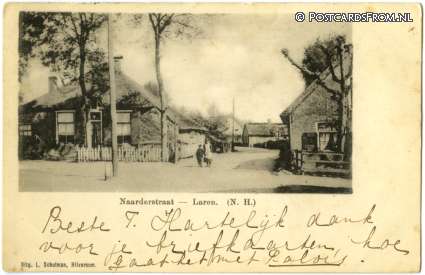 © PostcardsFrom.nl
Naarderstraat — Laren. (N. H.)
Beste T. Hartelijk dank
voor je briefkaarten, hoe
gaat het met
Uitg. L. Schutman, Hilversum.